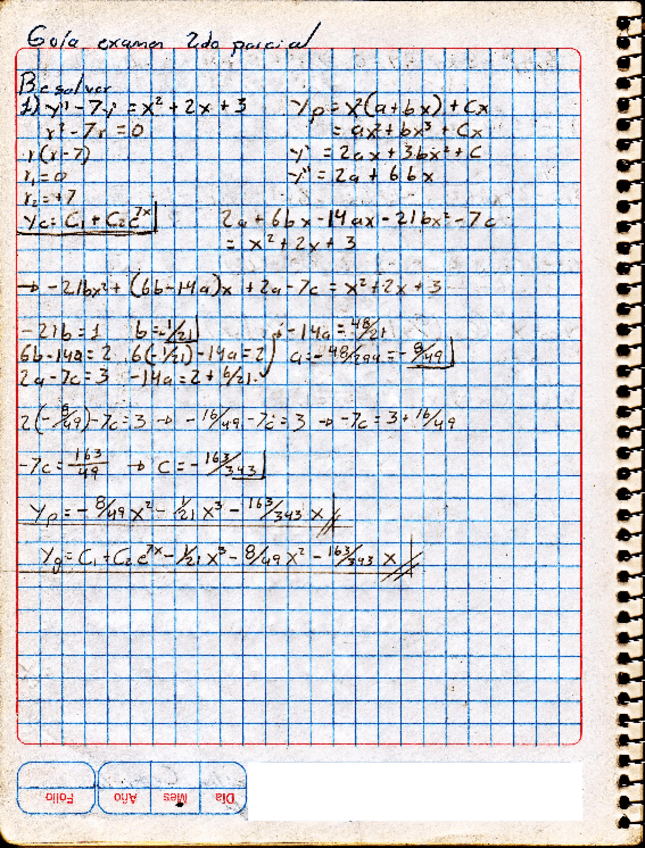 Guía examen 2do parcial
Resolver
1) y'' - 7y' = x² + 2x + 3
r² - 7r = 0
r(r-7)
r₁ = 0
r₂ = +7
Yc = C₁ + C₂e^7x
Yp = x²(a+bx) + Cx
= ax² + bx³ + Cx
y' = 2ax + 3bx² + C
y'' = 2a + 6bx
2a + 6bx - 14ax - 21bx² - 7c
= x² + 2x + 3
→ -21bx² + (6b-14a)x + 2a - 7c = x² + 2x + 3
-21b = 1 b = -1/21
6b - 14a = 2 6(-1/21) - 14a = 2
2a - 7c = 3 -14a = 2 + 6/21
-14a = 48/21
a = -48/294 = -8/49
2(-8/49) - 7c = 3 → -16/49 - 7c = 3 → -7c = 3 + 16/49
-7c = 163/49 → C = -163/343
Yp = -8/49 x² - 1/21 x³ - 163/343 x //
Yg = C₁ + C₂e^7x - 1/21 x³ - 8/49 x² - 163/343 x //
Folio Año Mes Día